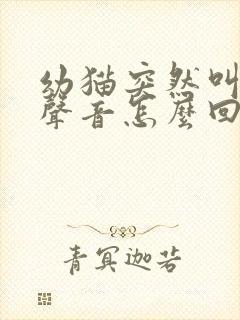 幼猫突然叫
聲音怎麼回
青冥迦若